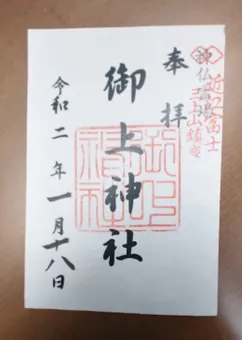 奉拝
近江富士
三上山鎮座
御上神社
令和二年一月十八日